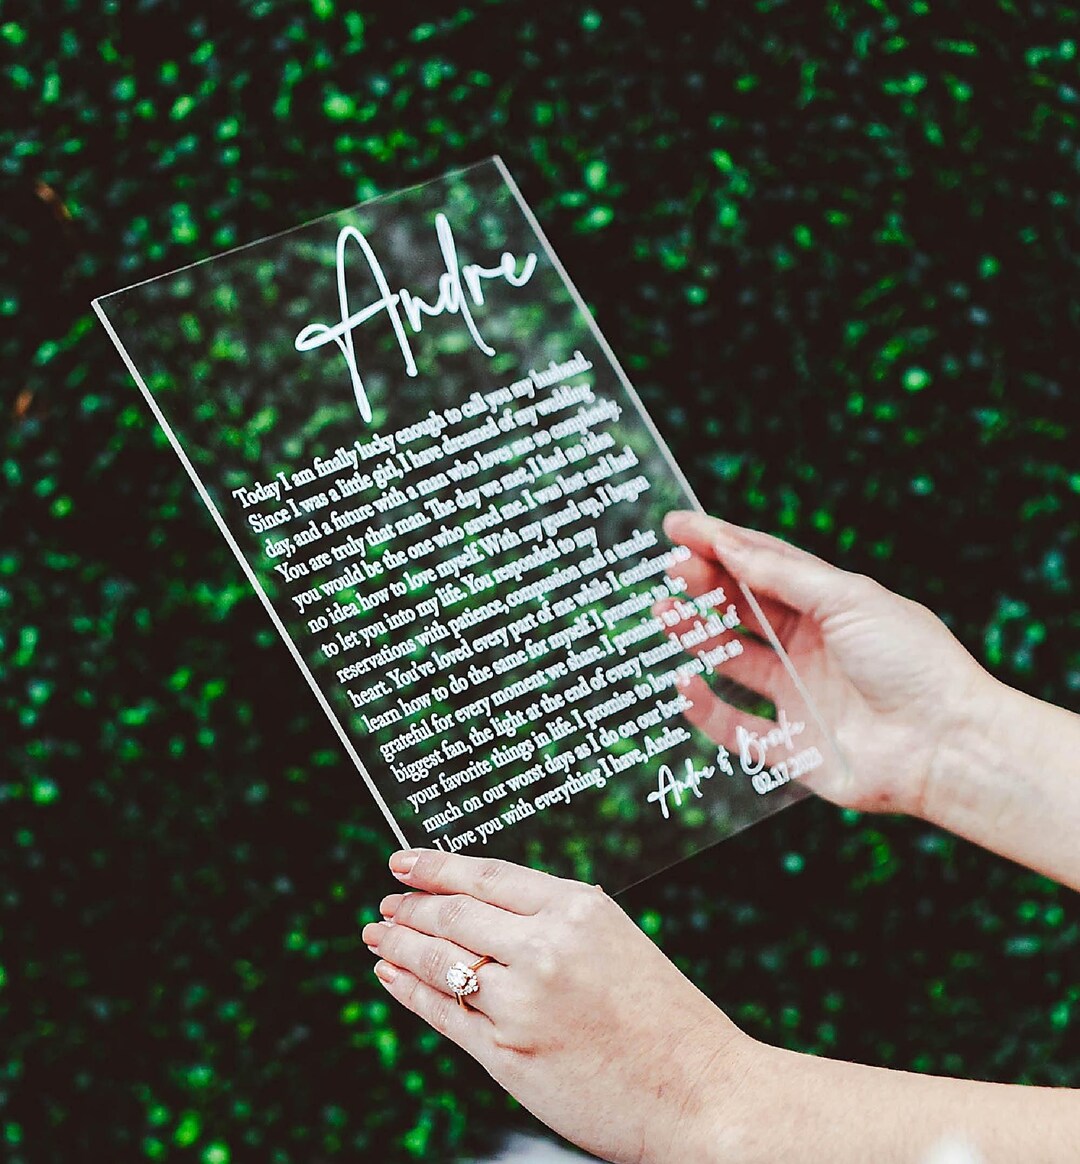 Andre
Today I am finally lucky enough to call you my husband.
Since I was a little girl, I have dreamed of my wedding
day, and a future with a man who loves me so completely.
You are truly that man. The day we met, I had no idea
you would be the one who saved me. I was lost and had
no idea how to love myself. With my guard up, I began
to let you into my life. You responded to my
reservations with patience, compassion and a tender
heart. You've loved every part of me while I continue to
learn how to do the same for myself. I promise to be
grateful for every moment we share. I promise to be your
biggest fan, the light at the end of every tunnel and all of
your favorite things in life. I promise to love you just as
much on our worst days as I do on our best.
I love you with everything I have, Andre.
Andre & Brooke
02.17.